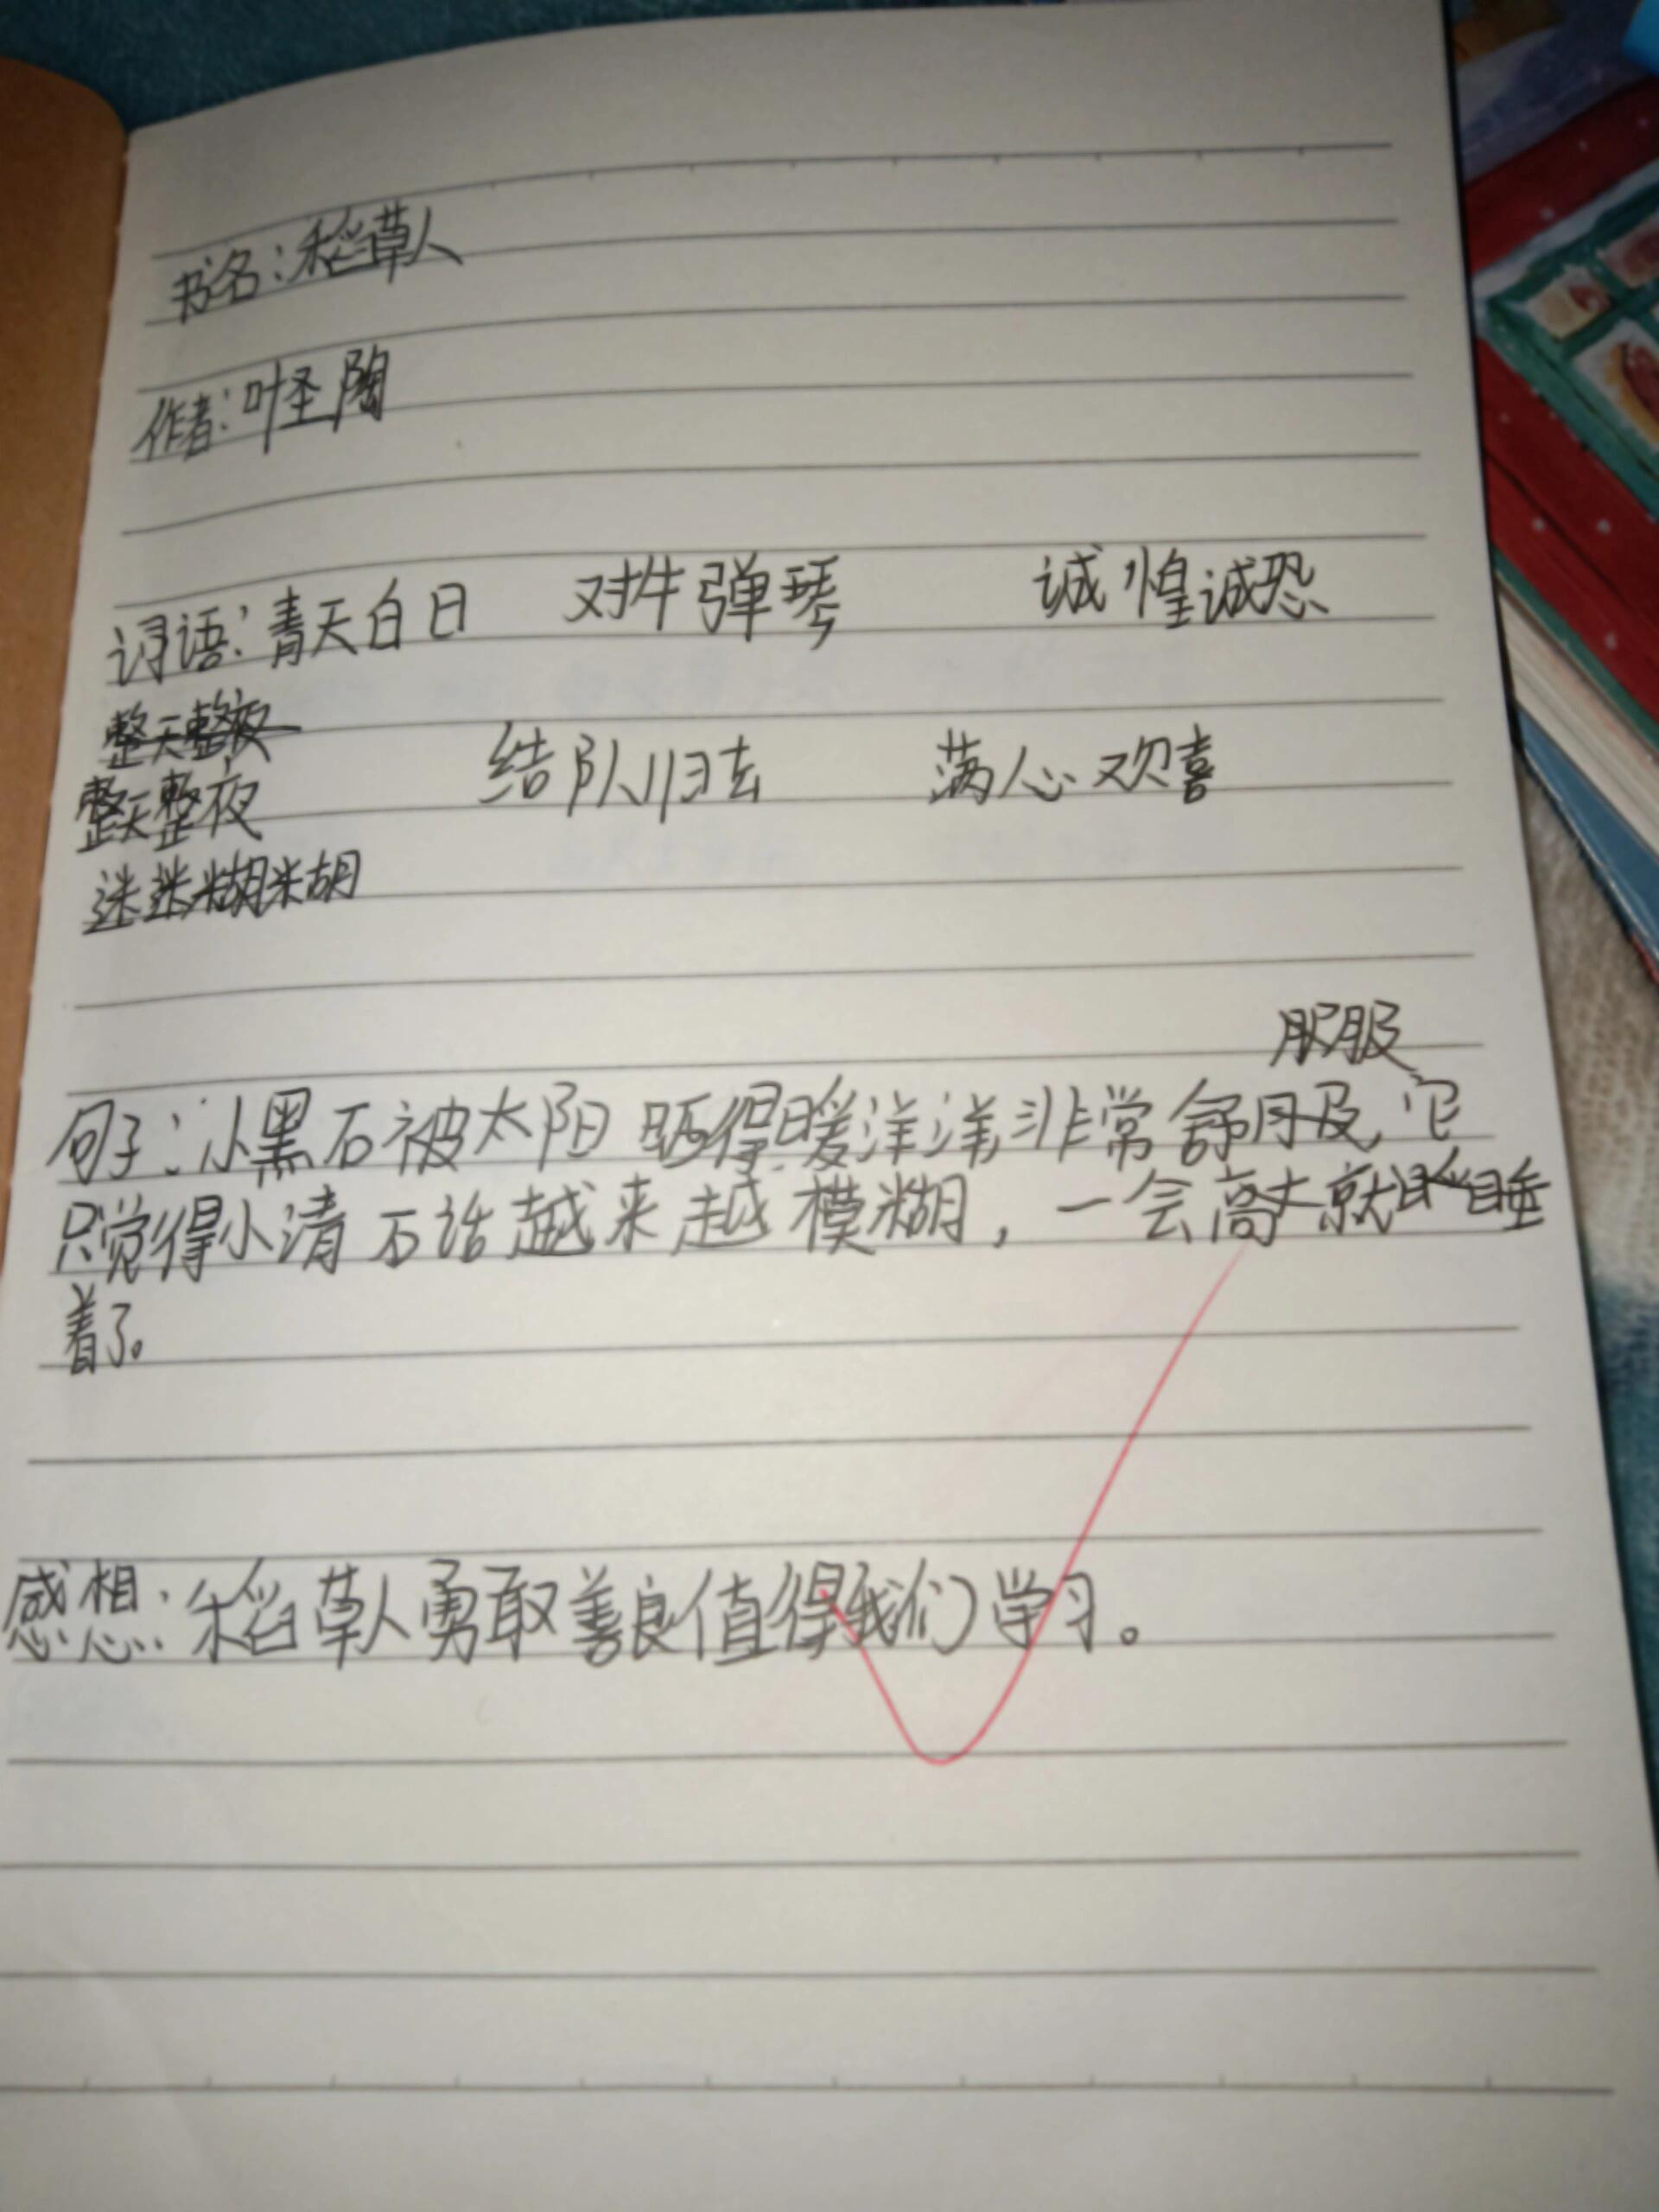 书名：稻草人
作者：叶圣陶
词语：青天白日 对牛弹琴 诚惶诚恐
整天整夜
整天整夜 结队归去 满心欢喜
迷迷糊糊
服服
句子：小黑石被太阳晒得暖洋洋，非常舒服，它
只觉得小清石话越来越模糊，一会就睡
着了。
感想：稻草人勇敢善良值得我们学习。